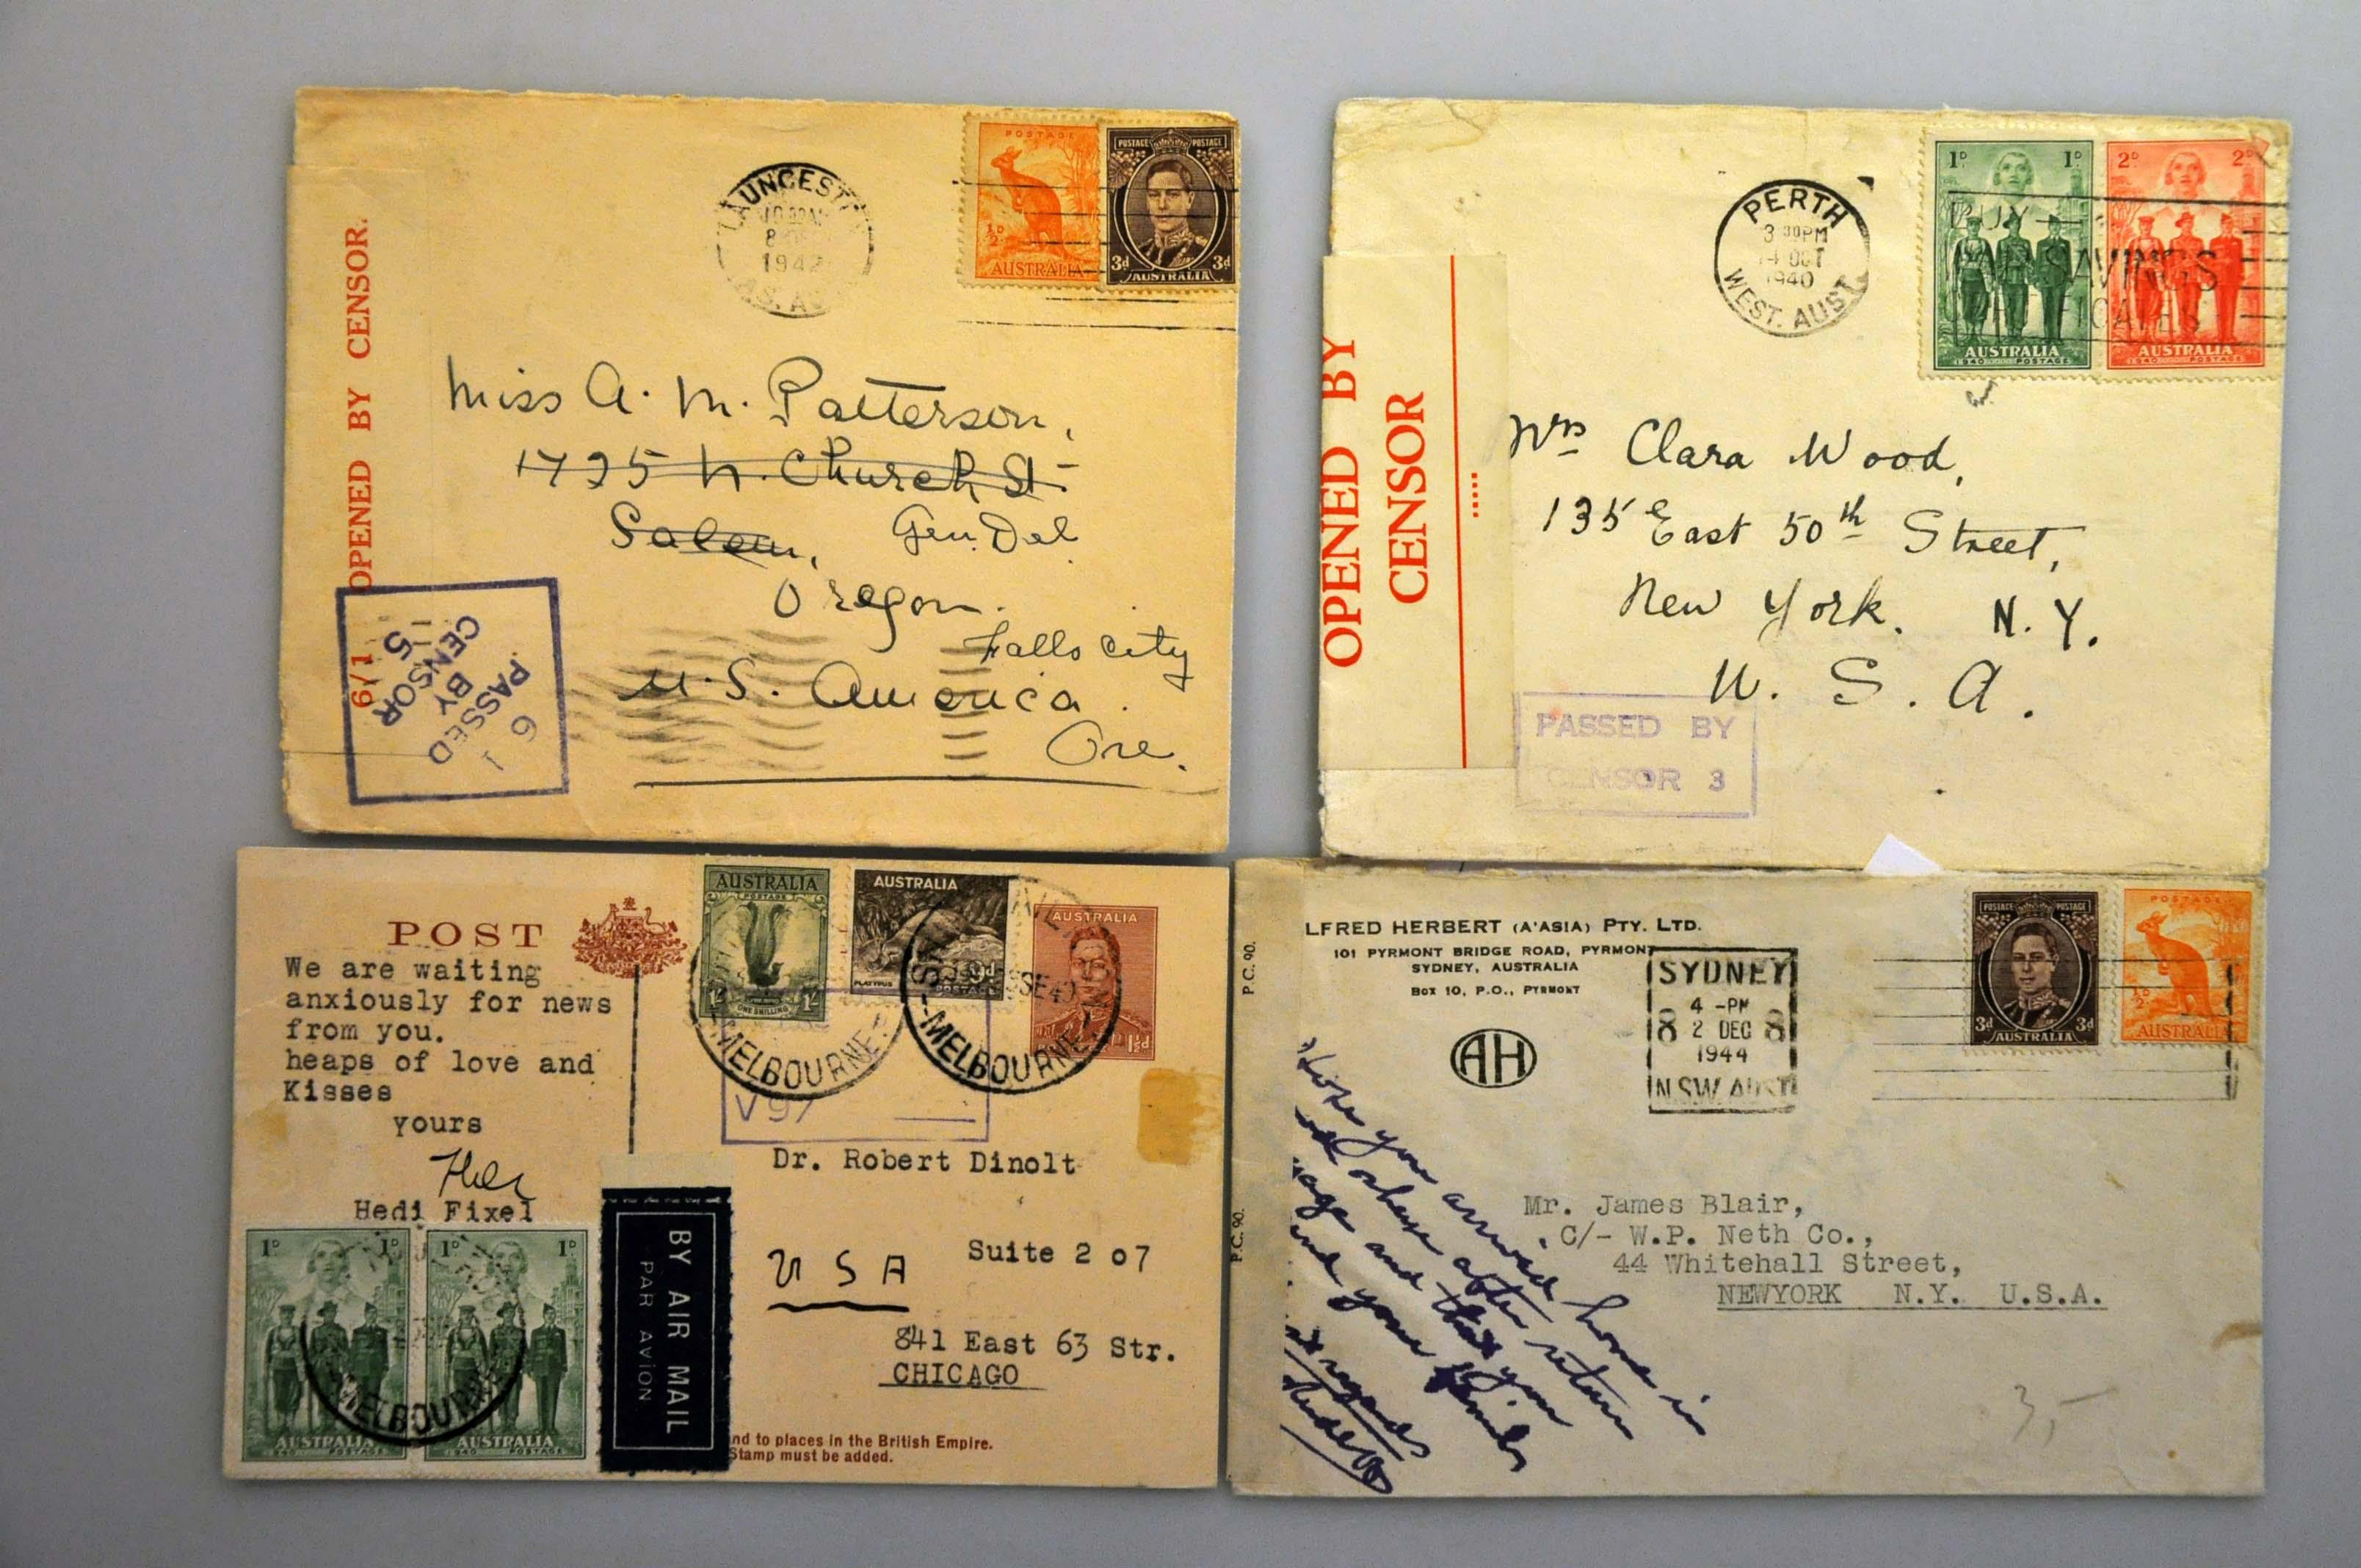 OPENED BY CENSOR.
6/1
LAUNCEST
1942
POSTAGE
½D
AUSTRALIA
POSTAGE POSTAGE
3d 3d
AUSTRALIA
Miss A. M. Patterson,
1725 N. Church St.
Salem, Gen. Del
Oregon.
Falls City
U. S. America.
Ore.
6 1
PASSED
BY
CENSOR
5
OPENED BY
CENSOR
PERTH
3 30PM
14 OCT
1940
WEST. AUST
1D 1D
AUSTRALIA
1940 POSTAGE
2D 2D
AUSTRALIA
1940 POSTAGE
BUY
SAVINGS
Mrs Clara Wood,
135 East 50th Street,
New York. N.Y.
U. S. A.
PASSED BY
CENSOR 3
POST
We are waiting
anxiously for news
from you.
heaps of love and
Kisses
yours
Hedi Fixel
AUSTRALIA
POSTAGE
1/- 1/-
ONE SHILLING
AUSTRALIA
PLATYPUS
AUSTRALIA
1½d
MELBOURNE
MELBOURNE
V97
Dr. Robert Dinolt
U S A
Suite 2 o7
841 East 63 Str.
CHICAGO
1D 1D
AUSTRALIA
1940 POSTAGE
1D 1D
AUSTRALIA
1940 POSTAGE
MELBOURNE
BY AIR MAIL
PAR AVION
nd to places in the British Empire.
Stamp must be added.
P.C. 90.
P.C. 90.
LFRED HERBERT (A'ASIA) PTY. LTD.
101 PYRMONT BRIDGE ROAD, PYRMONT
SYDNEY, AUSTRALIA
BOX 10, P.O., PYRMONT
AH
SYDNEY
4 -PM
8 2 DEC 8
1944
N.S.W. AUST
POSTAGE POSTAGE
3d 3d
AUSTRALIA
POSTAGE
½D
AUSTRALIA
Hope you arrived home in
after return
and that you
and your family
regards
Mr. James Blair,
C/- W.P. Neth Co.,
44 Whitehall Street,
NEWYORK N.Y. U.S.A.
3,-